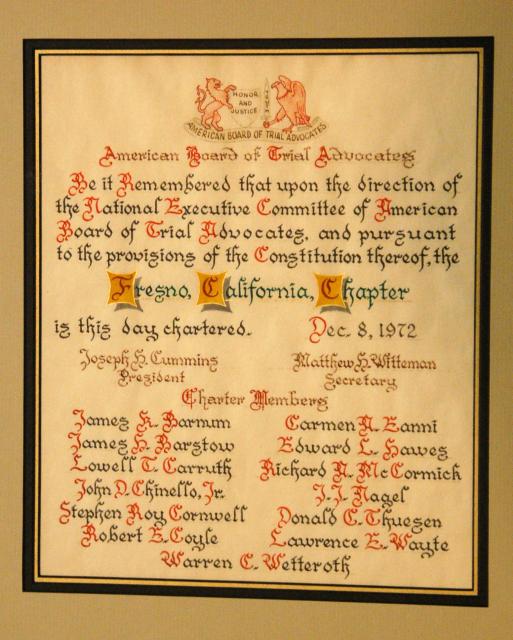 HONOR
AND
JUSTICE
AMERICAN BOARD OF TRIAL ADVOCATES
American Board of Trial Advocates
Be it Remembered that upon the direction of
the National Executive Committee of American
Board of Trial Advocates, and pursuant
to the provisions of the Constitution thereof, the
Fresno, California, Chapter
is this day chartered. Dec. 8, 1972
Joseph H. Cummins Matthew H. Witteman
President Secretary
Charter Members
James K. Barnum Carmen A. Eanni
James H. Barstow Edward L. Hawes
Lowell T. Carruth Richard N. McCormick
John D. Chinello, Jr. J. J. Nagel
Stephen Roy Cornwell Donald C. Thuesen
Robert E. Coyle Lawrence E. Wayte
Warren C. Wetteroth